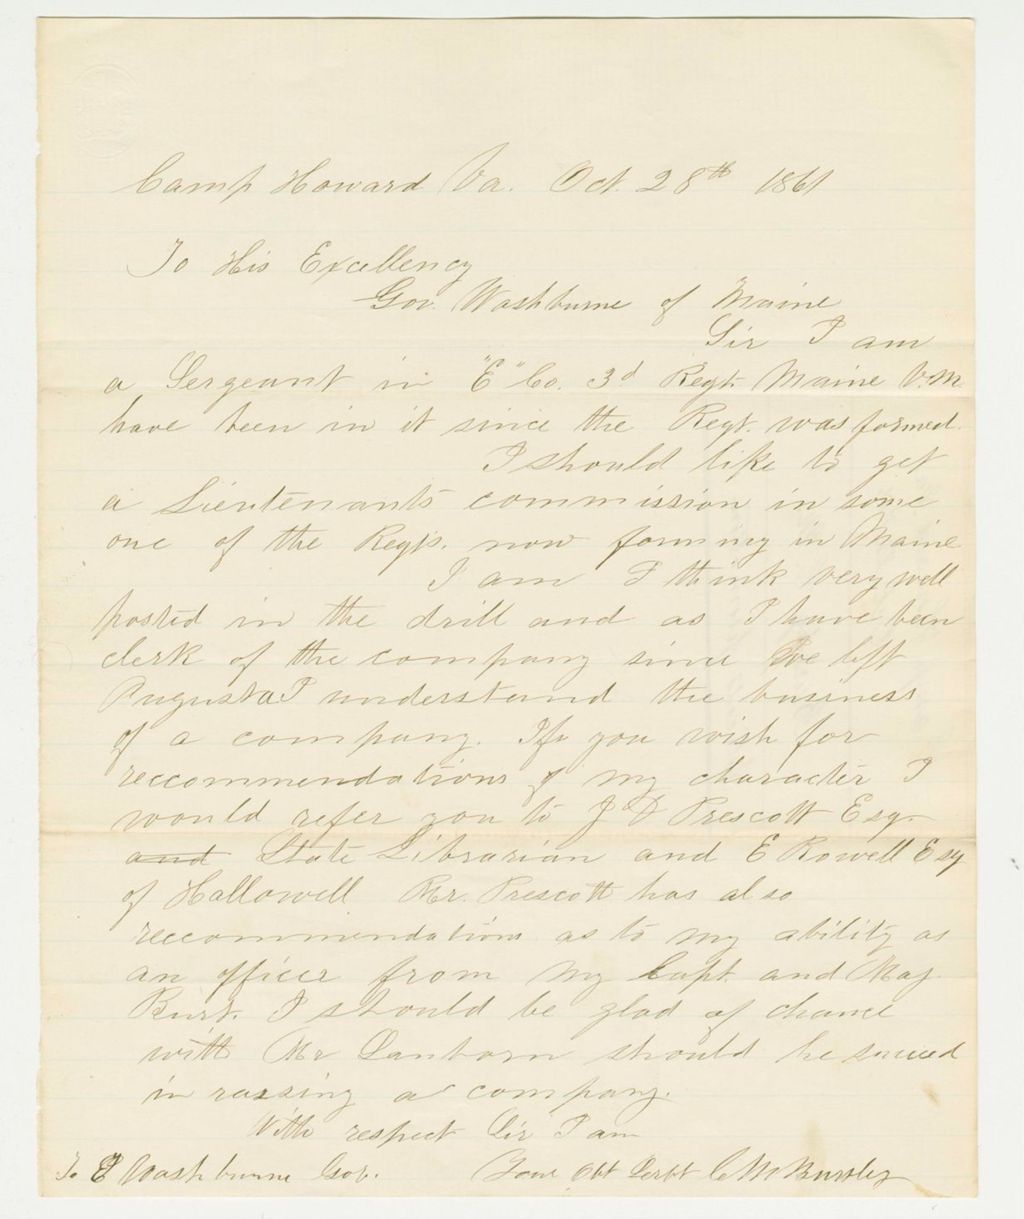 Camp Howard Va. Oct. 28th 1861
To His Excellency
Gov. Washburne of Maine
Sir I am
a Sergeant in "E" Co. 3d Regt. Maine V.M.
have been in it since the Regt. was formed.
I should like to get
a Lieutenants commission in some
one of the Regts. now forming in Maine
I am I think very well
posted in the drill and as I have been
clerk of the company since we left
Augusta I understand the business
of a company. If you wish for
reccommendations of my character I
would refer you to J D Prescott Esq.
and State Librarian and E Rowell Esq
of Hallowell Mr. Prescott has also
reccommendations as to my ability as
an officer from my Capt. and Maj.
Burt. I should be glad of chance
with Mr Sanborn should he succeed
in raising a company.
With respect Sir I am
Your Obt Servt C M Bursley
To I Washburne Gov.